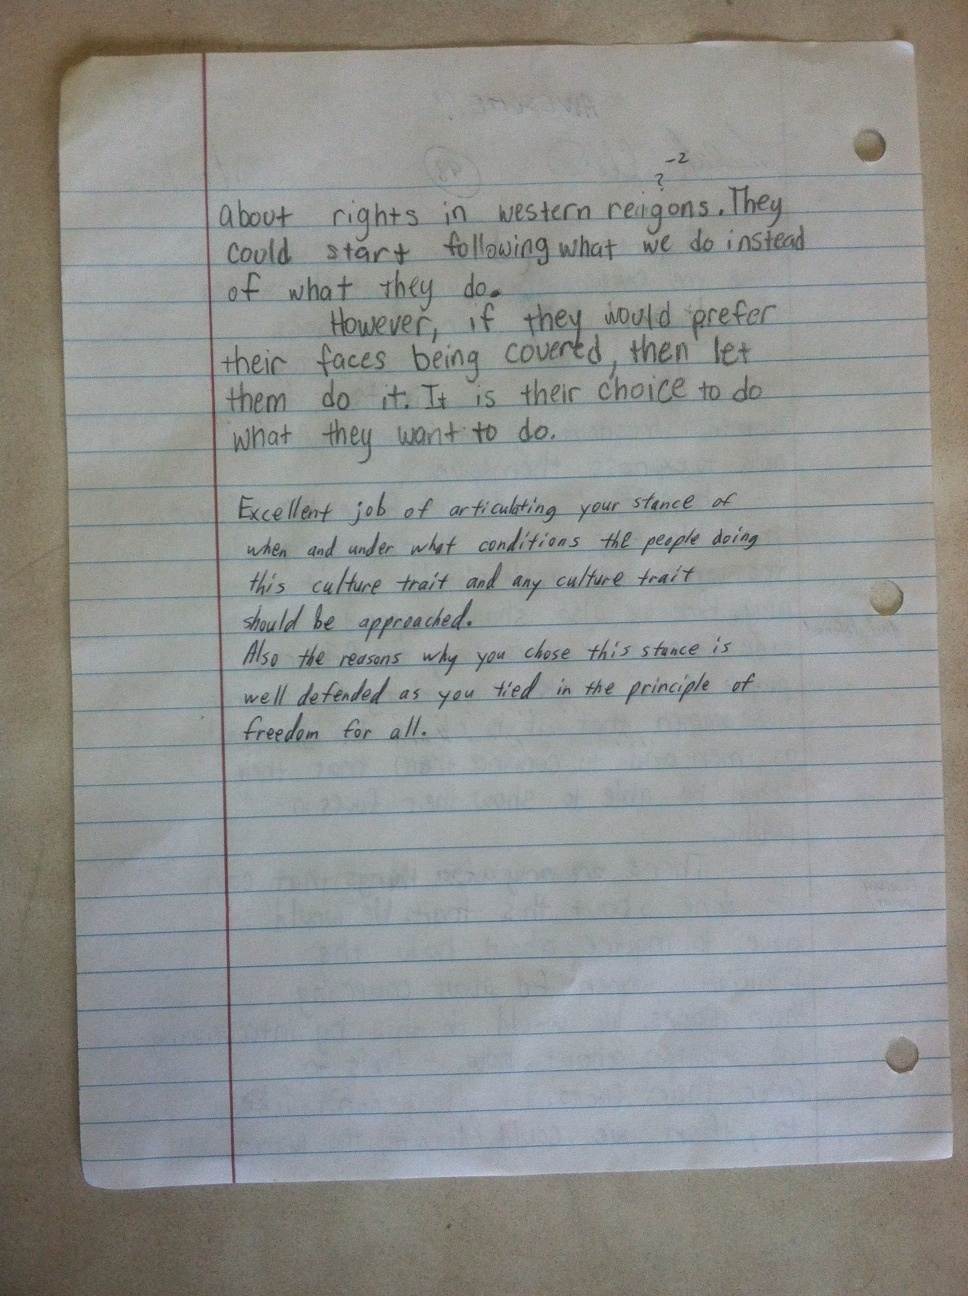 -2
?
about rights in western reigons. They
could start following what we do instead
of what they do.
However, if they would prefer
their faces being covered, then let
them do it. It is their choice to do
what they want to do.
Excellent job of articulating your stance of
when and under what conditions the people doing
this culture trait and any culture trait
should be approached.
Also the reasons why you chose this stance is
well defended as you tied in the principle of
freedom for all.